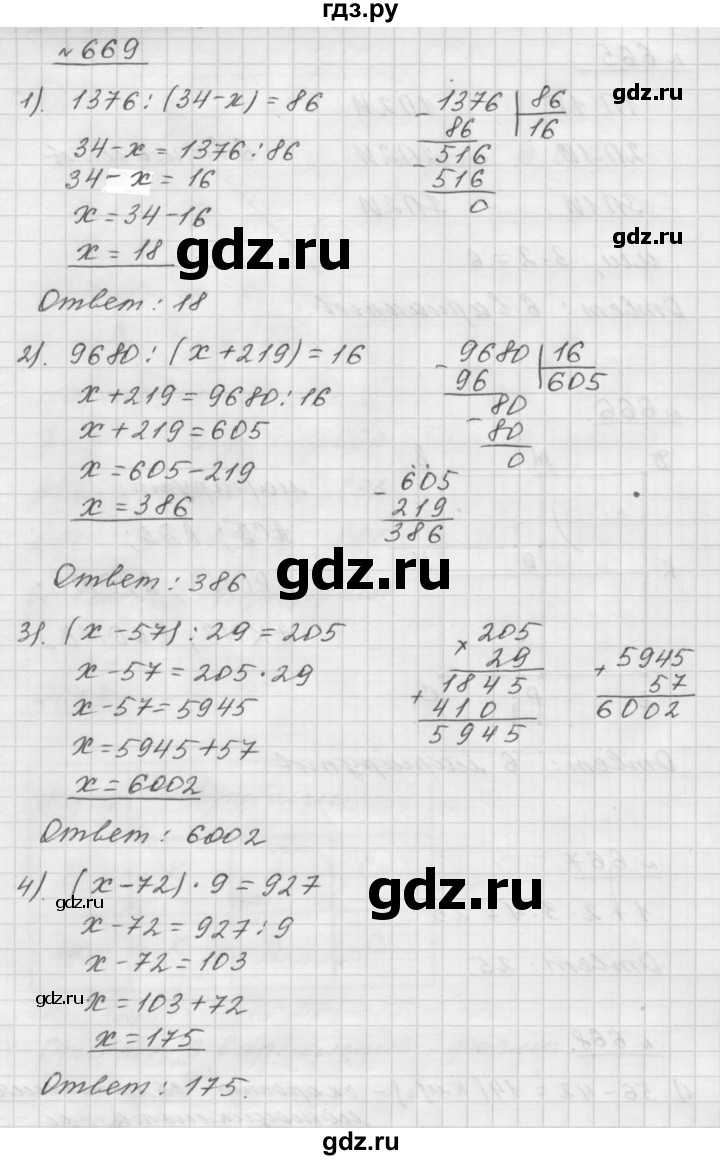 гдз.ру
№ 669
1). 1376 : (34 - x) = 86
34 - x = 1376 : 86
34 - x = 16
x = 34 - 16
x = 18
Ответ : 18
- 1376 | 86
86 | 16
- 516
516
0
gdz.ru
gdz.ru
gdz.ru
2). 9680 : (x + 219) = 16
x + 219 = 9680 : 16
x + 219 = 605
x = 605 - 219
x = 386
Ответ : 386
- 9680 | 16
96 | 605
- 80
80
0
- 605
219
386
gdz.ru
3). (x - 57) : 29 = 205
x - 57 = 205 · 29
x - 57 = 5945
x = 5945 + 57
x = 6002
Ответ : 6002
× 205
29
+ 1845
410
5945
+ 5945
57
6002
4). (x - 72) · 9 = 927
x - 72 = 927 : 9
x - 72 = 103
x = 103 + 72
x = 175
Ответ : 175.
gdz.ru
gdz.ru
gdz.ru
gdz.ru